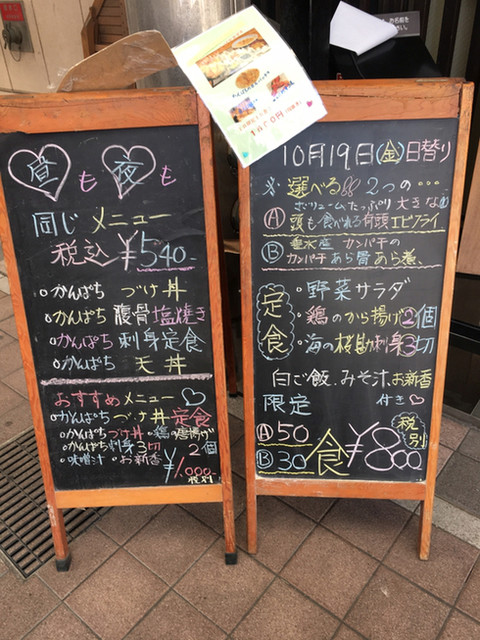 昼も 夜も
同じ メニュー
税込 ¥540-
・かんぱち づけ丼
・かんぱち 腹骨塩焼き
・かんぱち 刺身定食
・かんぱち 天丼
おすすめメニュー♡
・かんぱち づけ丼 定食
・かんぱち づけ丼 ・鶏の唐揚げ 2個
・かんぱち刺身 3切
・味噌汁 ・お新香
¥1,000- 税別
10月19日(金)日替り
※ 選べる 2つの…
ボリュームたっぷり 大きな
Ⓐ 頭も食べれる有頭エビフライ
Ⓑ 垂水産 カンパチの
カンパチあら骨あら煮、
定食
・野菜サラダ
・鶏のから揚げ2個
・海の桜勘刺身3切
白ご飯、みそ汁、お新香
限定 付き♡
Ⓐ50
Ⓑ30食
¥800 税別